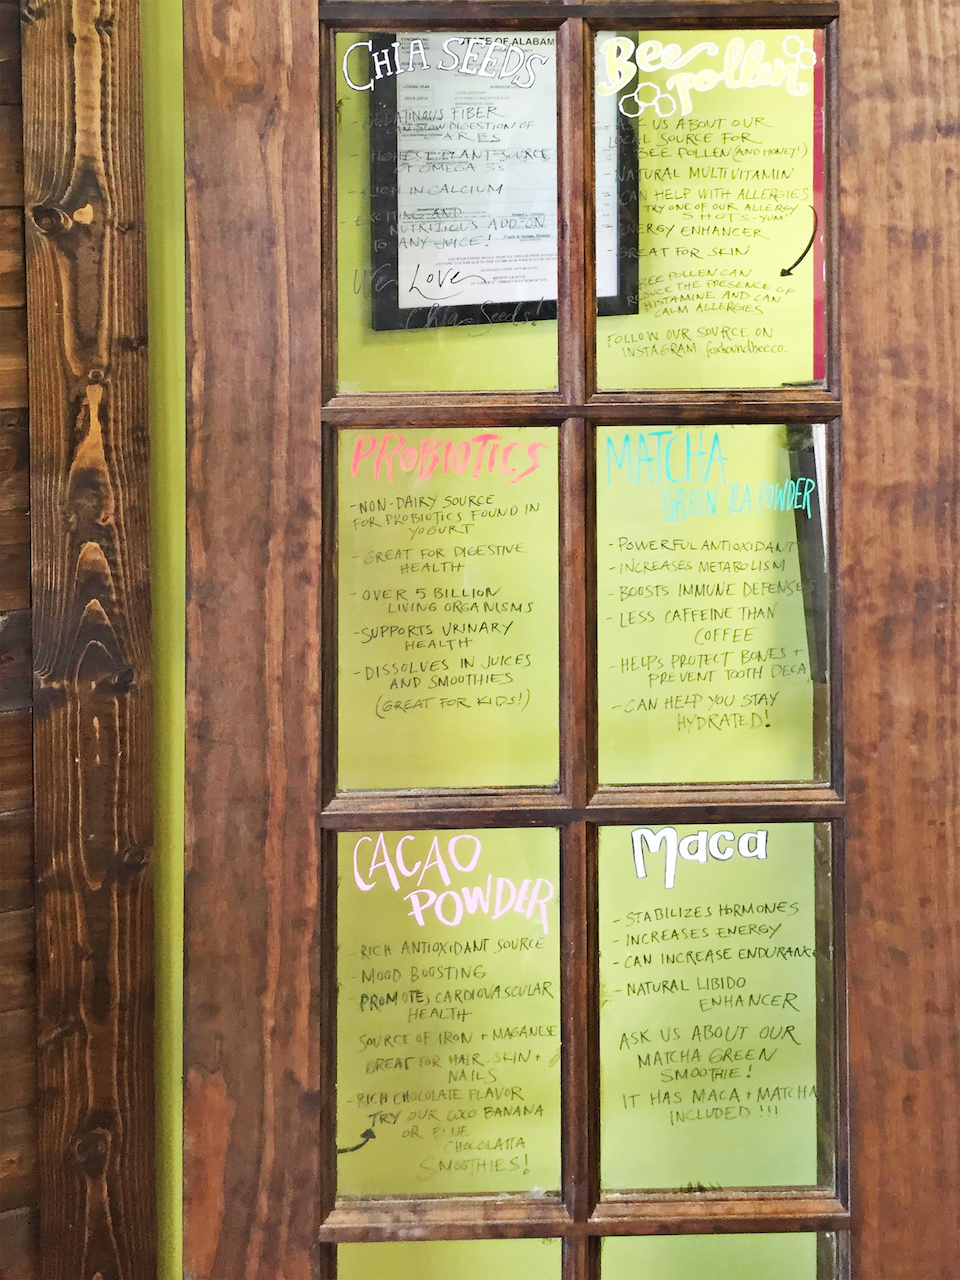 CHIA SEEDS
STATE OF ALABAM
GELATINOUS FIBER
CAN SLOW DIGESTION OF
- HIGHEST PLANT SOURCE
OF OMEGA 3'S
- RICH IN CALCIUM
- EXCITING AND
NUTRITIOUS ADD-ON
TO ANY JUICE!
We Love
Chia Seeds!
Bee
pollen
ASK US ABOUT OUR
LOCAL SOURCE FOR
BEE POLLEN (AND HONEY!)
NATURAL MULTIVITAMIN
CAN HELP WITH ALLERGIES
TRY ONE OF OUR ALLERGY
SHOTS-YUM!
ENERGY ENHANCER
GREAT FOR SKIN
BEE POLLEN CAN
REDUCE THE PRESENCE OF
HISTAMINE AND CAN
CALM ALLERGIES
FOLLOW OUR SOURCE ON
INSTAGRAM foxhoundbeeco.
PROBIOTICS
-NON-DAIRY SOURCE
FOR PROBIOTICS FOUND IN
YOGURT
-GREAT FOR DIGESTIVE
HEALTH
-OVER 5 BILLION
LIVING ORGANISMS
-SUPPORTS URINARY
HEALTH
-DISSOLVES IN JUICES
AND SMOOTHIES
(GREAT FOR KIDS!)
MATCHA
GREEN TEA POWDER
-POWERFUL ANTIOXIDANT
-INCREASES METABOLISM
-BOOSTS IMMUNE DEFENSES
-LESS CAFFEINE THAN
COFFEE
-HELPS PROTECT BONES +
PREVENT TOOTH DECA
-CAN HELP YOU STAY
HYDRATED!
CACAO
POWDER
-RICH ANTIOXIDANT SOURCE
-MOOD BOOSTING
-PROMOTES CARDIOVASCULAR
HEALTH
SOURCE OF IRON + MAGANESE
GREAT FOR HAIR, SKIN +
NAILS
-RICH CHOCOLATE FLAVOR
TRY OUR COCO BANANA
OR BLUE
CHOCOLATTA
SMOOTHIES!
Maca
-STABILIZES HORMONES
-INCREASES ENERGY
-CAN INCREASE ENDURANCE
-NATURAL LIBIDO
ENHANCER
ASK US ABOUT OUR
MATCHA GREEN
SMOOTHIE!
IT HAS MACA + MATCHA
INCLUDED!!!